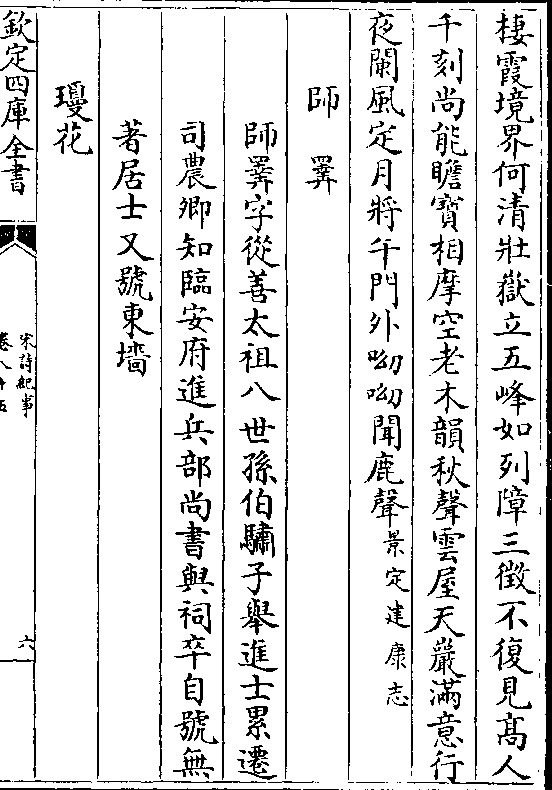 棲霞境界何清壯嶽立五峰如列障三徵不復見髙人
千刻尚能瞻寶相摩空老木韻秋聲雲屋天巖滿意行
夜闌風定月將午門外呦呦聞鹿聲景定建康志
師𢍰
師𢍰字從善太祖八世孫伯驌子舉進士累遷
司農卿知臨安府進兵部尚書與祠卒自號無
著居士又號東墻
瓊花
欽定四庫全書
宋詩紀事
卷八十五
六